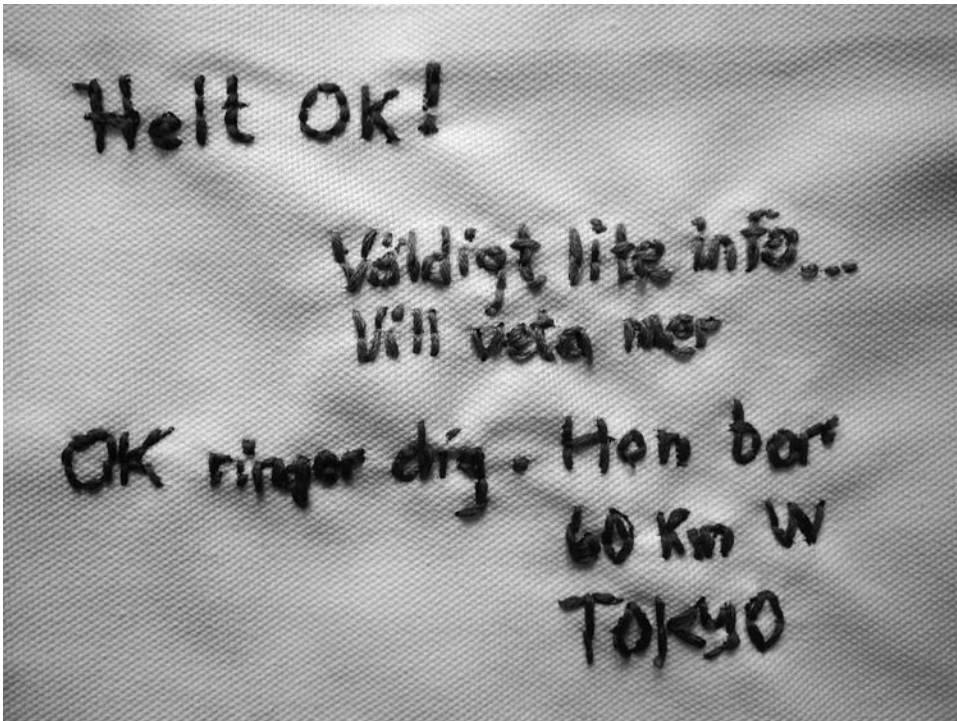 Helt OK!
Väldigt lite info...
Vill veta mer
OK ringer dig. Hon bor
60 Km W
TOKYO